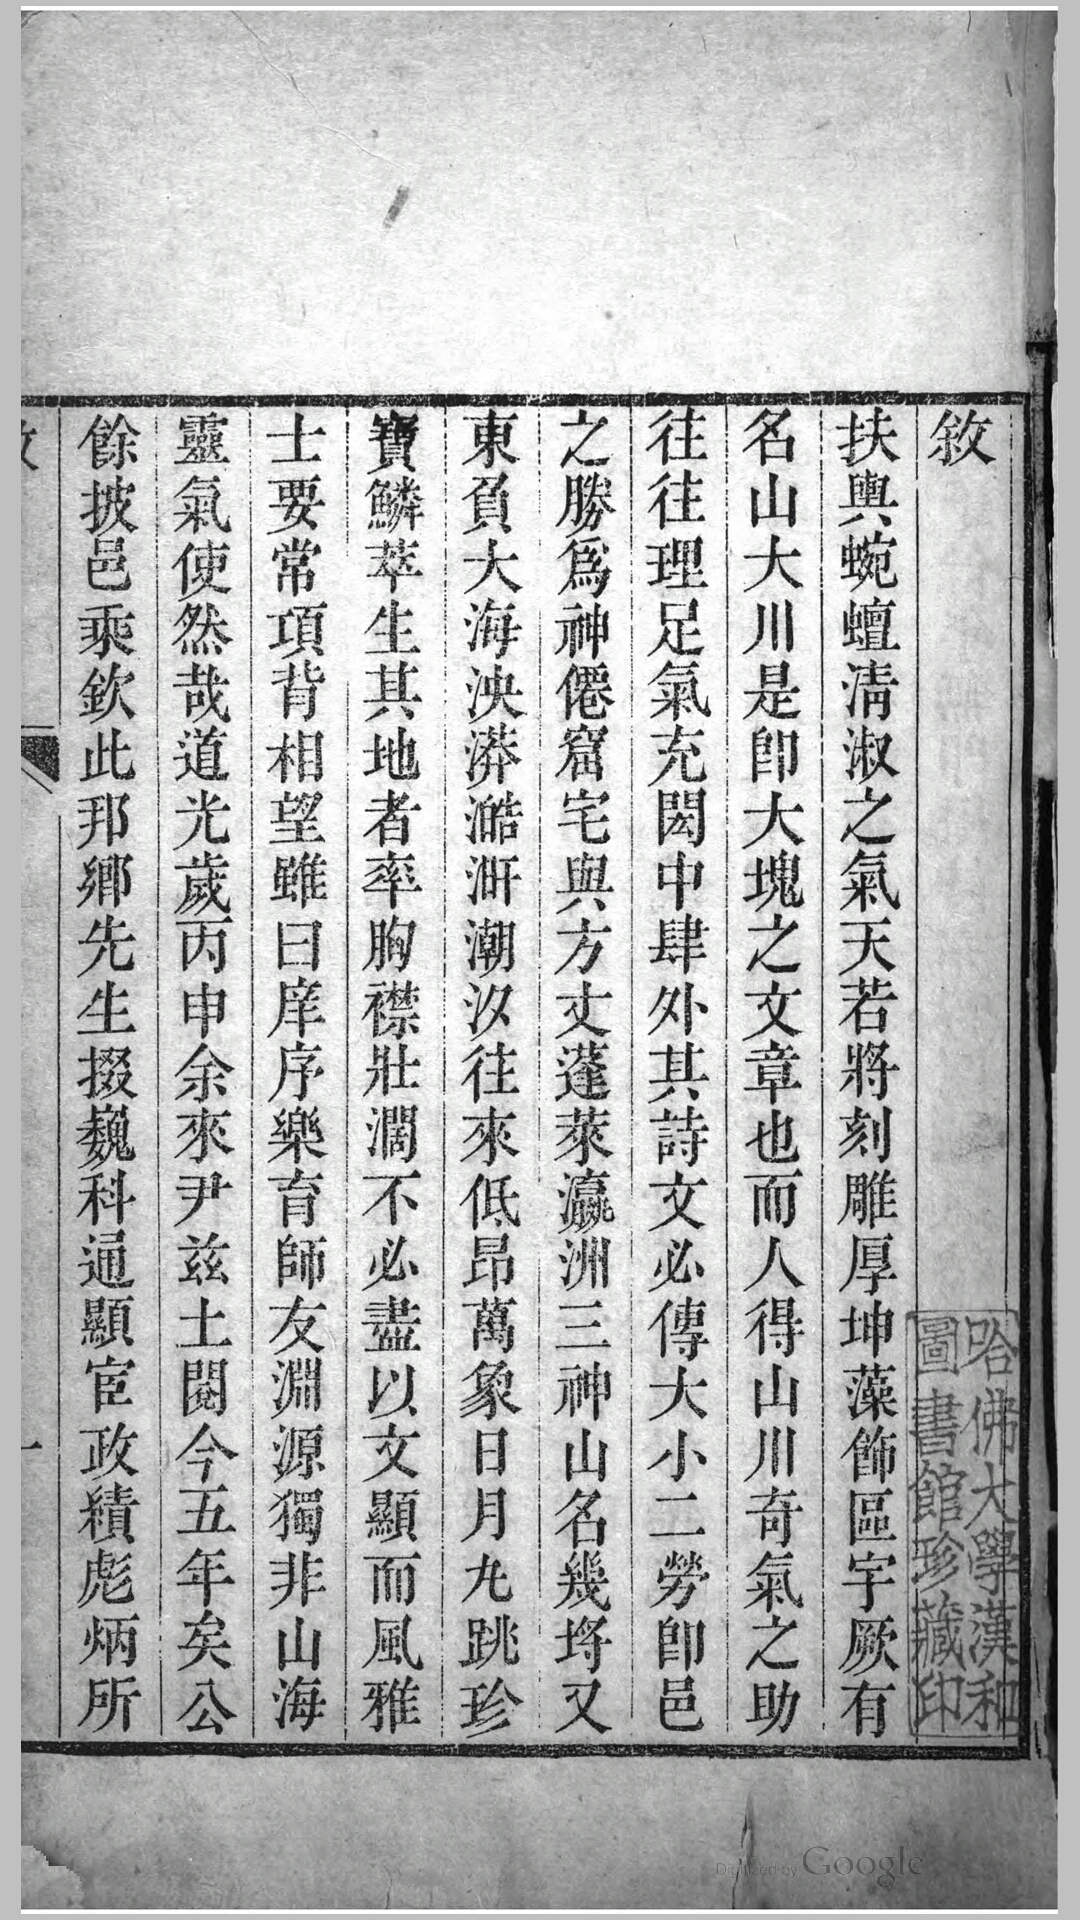 敘
扶輿蜿蟺淸淑之氣天若將刻雕厚坤藻飾區宇厥有
名山大川是卽大塊之文章也而人得山川奇氣之助
往往理足氣充閎中肆外其詩文必傳大小二勞卽邑
之勝爲神僊窟宅與方丈蓬萊瀛洲三神山名幾埒又
東負大海泱漭澔汗潮汐往來低昂萬象日月九跳珍
寶鱗萃生其地者率胸襟壯濶不必盡以文顯而風雅
士要常項背相望雖曰庠序樂育師友淵源獨非山海
靈氣使然哉道光歲丙申余來尹兹土閱今五年矣公
餘披邑乘欽此邦鄉先生掇巍科通顯宦政績彪炳所
哈佛大學漢和
圖書館珍藏印
Digitized by Google